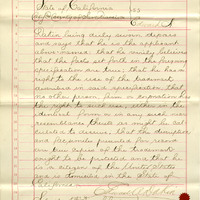 State of California
being duly sworn deposes
and says that he is the applicant
above named that he verily believes
that the facts set forth in the foregoing
specification are true; that he has a
right to the use of the trademark
described in said specification, that
no other person firm or corporation has
the right to such use, either in the
identical form or in any such near
resemblance thereto as might be cal
culated to deceive, that the description
and facsimiles presented for record
are true copies of the trademark
sought to be protected and that he
is a citizen of the United States
and is domiciled in the State of
California